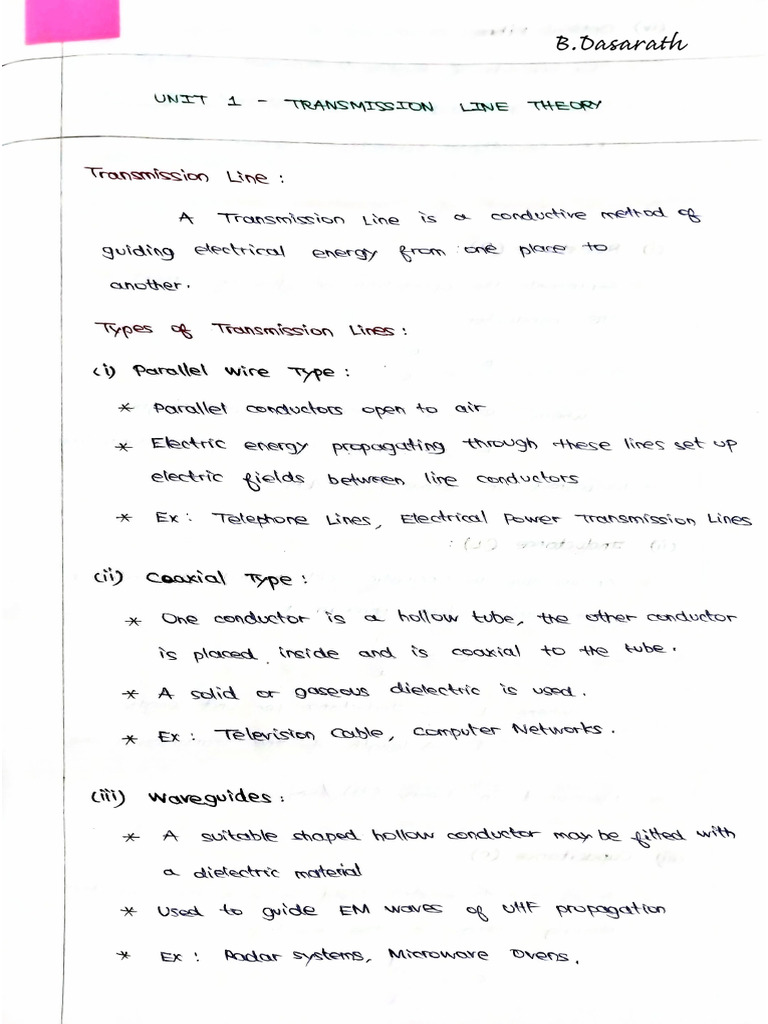 B.Dasarath
UNIT 1 - TRANSMISSION LINE THEORY
Transmission Line :
A Transmission Line is a conductive method of
guiding electrical energy from one place to
another.
Types of Transmission Lines :
(i) Parallel Wire Type :
* Parallel conductors open to air
* Electric energy propagating through these lines set up
electric fields between line conductors
* Ex : Telephone Lines, Electrical Power Transmission Lines
(ii) Coaxial Type :
* One conductor is a hollow tube, the other conductor
is placed inside and is coaxial to the tube.
* A solid or gaseous dielectric is used.
* Ex : Television Cable, Computer Networks.
(iii) Waveguides :
* A suitable shaped hollow conductor may be fitted with
a dielectric material
* Used to guide EM waves of UHF propagation
* Ex : Radar systems, Microwave Ovens.